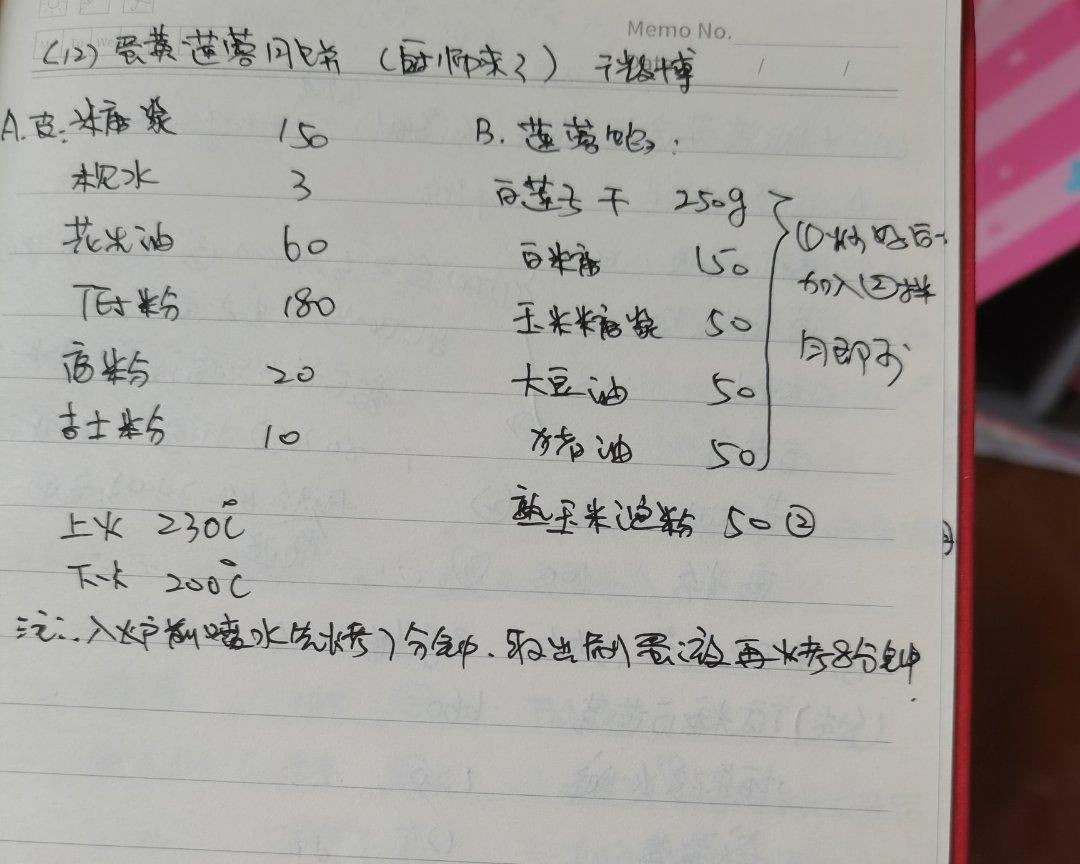 Memo No.
(12) 蛋黄莲蓉月饼 (厨师来了)
A.皮: 米糖浆 150
枧水 3
花生油 60
低粉 180
奶粉 20
吉士粉 10
上火 230℃
下火 200℃
B. 莲蓉馅:
白莲子干 250g
白糖 150
玉米糖浆 50
大豆油 50
猪油 50
熟玉米淀粉 50 ②
①炒好后
加入②拌
匀即可
注: 入炉前喷水先烤7分钟.取出刷蛋液再烤8分钟.